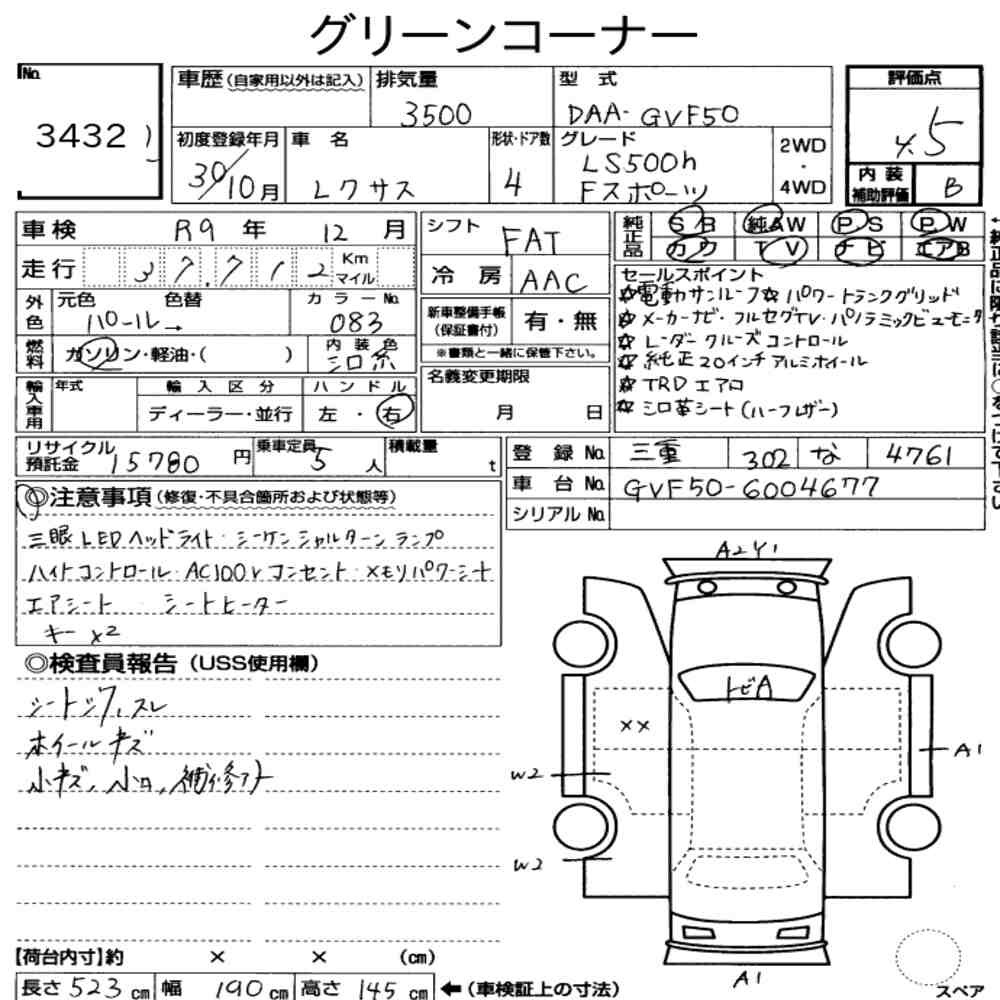 グリーンコーナー
No. 3432
車歴(自家用以外は記入) 排気量 3500 型式 DAA-GVF50
初度登録年月 30/10月 車名 レクサス 形状・ドア数 4 グレード LS500h Fスポーツ 2WD・4WD
評価点 4.5
内装補助評価 B
車検 R9年 12月
走行 37,712 Km マイル
外色 元色 パール→ 色替 カラーNo. 083
燃料 ガソリン・軽油・( ) 内装色 シロ系
輸入車用 年式 輸入区分 ディーラー・並行 ハンドル 左・右
シフト FAT
冷房 AAC
新車整備手帳(保証書付) 有・無
※書類と一緒に保管下さい。
名義変更期限 月 日
純正品 SR 純AW PS PW
カワ TV ナビ エアB
セールスポイント
☆電動サンルーフ☆パワートランクグリッド
☆メーカーナビ・フルセグTV・パノラミックビューモニタ
☆レーダークルーズコントロール
☆純正20インチアルミホイール
☆TRDエアロ
☆シロ革シート(ハーフレザー)
リサイクル預託金 15780円 乗車定員 5人 積載量 t
登録No. 三重 302 な 4761
車台No. GVF50-6004677
シリアルNo.
◎注意事項(修復・不具合箇所および状態等)
三眼LEDヘッドライト・シーケンシャルターンランプ
ハイトコントロール・AC100Vコンセント・メモリパワーシート
エアシート・シートヒーター
キー×2
◎検査員報告(USS使用欄)
シートシワ、スレ
ホイールキズ
小キズ、小凹、補修アト
A2Y1
トビA
××
A1
W2
W2
A1
スペア
【荷台内寸】約 × × (cm)
長さ 523cm 幅 190cm 高さ 145cm ←(車検証上の寸法)